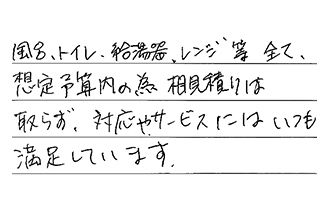 風呂、トイレ、給湯器、レンジ等 全て、
想定予算内の為 相見積りは
取らず、対応やサービスにはいつも
満足しています。